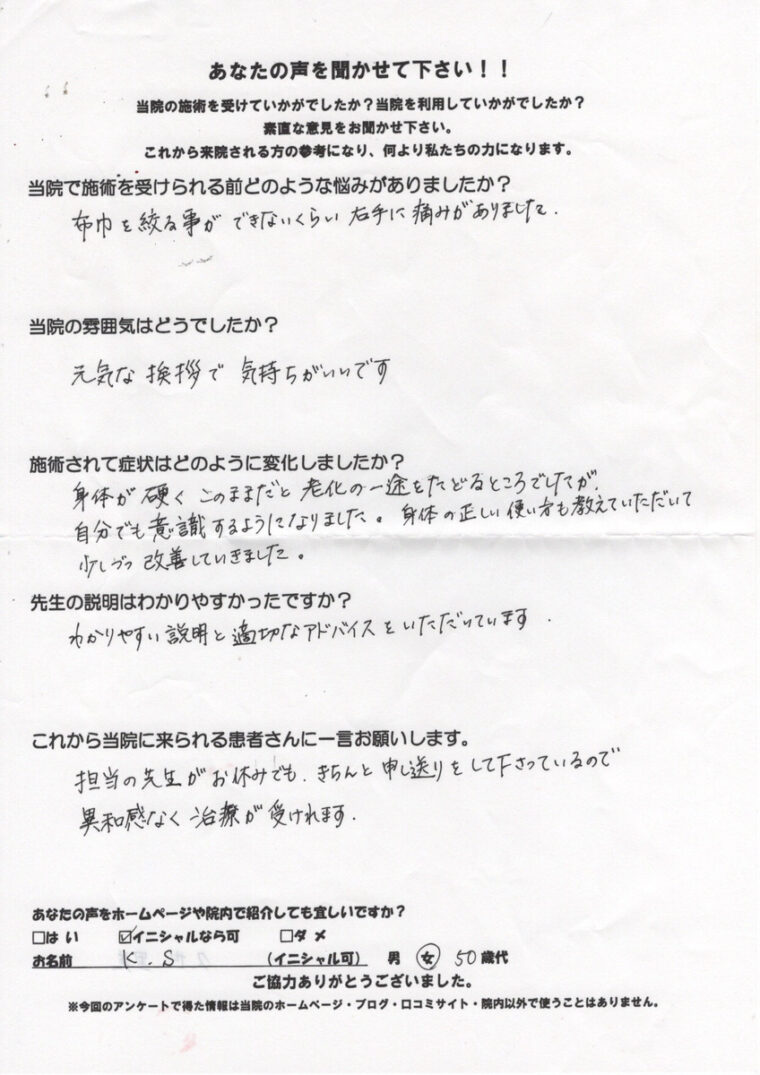 あなたの声を聞かせて下さい！！
当院の施術を受けていかがでしたか？当院を利用していかがでしたか？
素直な意見をお聞かせ下さい。
これから来院される方の参考になり、何より私たちの力になります。
当院で施術を受けられる前どのような悩みがありましたか？
布巾を絞る事ができないくらい右手に痛みがありました.
当院の雰囲気はどうでしたか？
元気な挨拶で気持ちがいいです
施術されて症状はどのように変化しましたか？
身体が硬くこのままだと老化の一途をたどるところでしたが、
自分でも意識するようになりました。身体の正しい使い方も教えていただいて
少しづつ改善していきました。
先生の説明はわかりやすかったですか？
わかりやすい説明と適切なアドバイスをいただいています.
これから当院に来られる患者さんに一言お願いします。
担当の先生がお休みでも、きちんと申し送りをして下さっているので
異和感なく治療が受けれます.
あなたの声をホームページや院内で紹介しても宜しいですか？
□はい ☑イニシャルなら可 □ダメ
お名前 K.S (イニシャル可) 男 女 50歳代
ご協力ありがとうございました。
※今回のアンケートで得た情報は当院のホームページ・ブログ・口コミサイト・院内以外で使うことはありません。